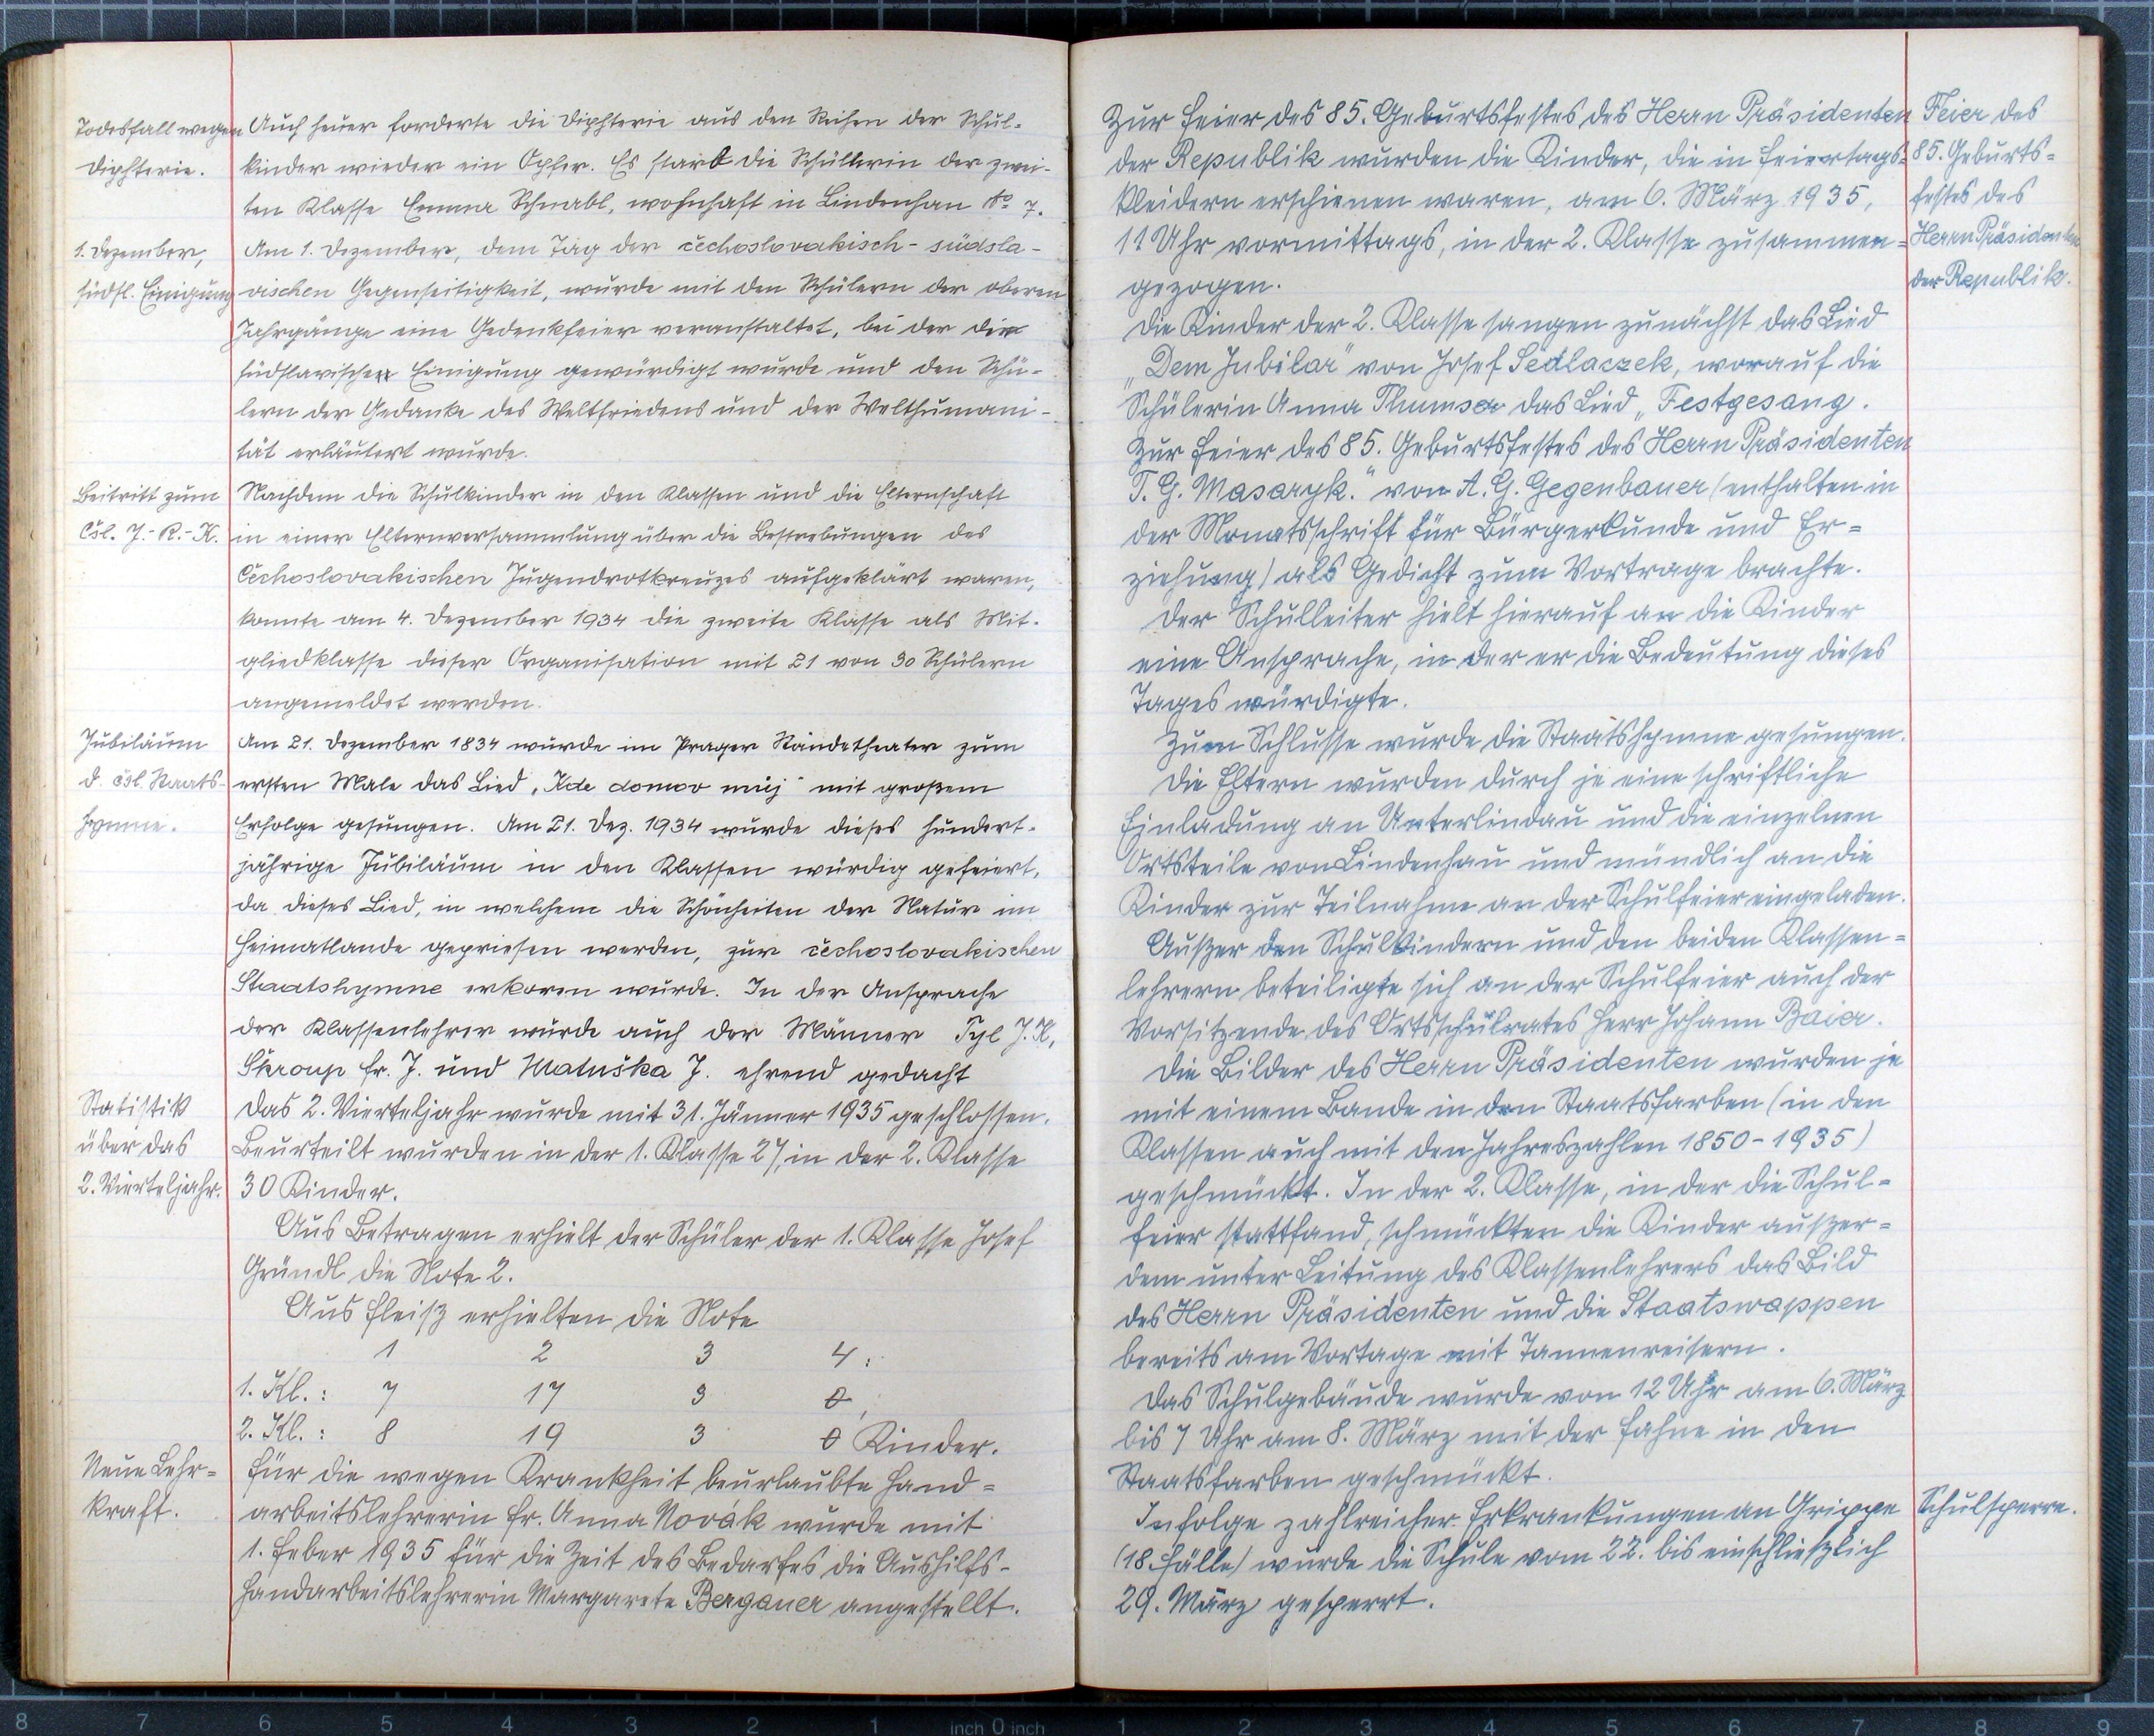 Todesfall wegen
Diphterie.
Auch heuer forderte die Diphterie aus den Reihen der Schul-
kinder wieder ein Opfer. Es starb die Schülerin der zwei-
ten Klasse Emma Schnabl, wohnhaft in Lindenhau No 7.
1. Dezember,
südsl. Einigung
Am 1. Dezember, dem Tag der čechoslovakisch-südsla-
vischen Gegenseitigkeit, wurde mit den Schülern der oberen
Jahrgänge eine Gedenkfeier veranstaltet, bei der die
südslavischen Einigung gewürdigt wurde und den Schü-
lern der Gedanke des Weltfriedens und der Welthumani-
tät erläutert wurde.
Beitritt zum
Čsl. J.-R.-K.
Nachdem die Schulkinder in den Klassen und die Elternschaft
in einer Elternversammlung über die Bestrebungen des
Čechoslovakischen Jugendrotkreuzes aufgeklärt waren,
konnte am 4. Dezember 1934 die zweite Klasse als Mit-
gliedklasse dieser Organisation mit 21 von 30 Schülern
angemeldet werden.
Jubiläum
d. čsl. Staats-
hymne.
Am 21. Dezember 1834 wurde im Prager Ständetheater zum
ersten Male das Lied „Kde domov můj" mit großem
Erfolge gesungen. Am 21. Dez. 1934 wurde dieses hundert-
jährige Jubiläum in den Klassen würdig gefeiert,
da dieses Lied, in welchem die Schönheiten der Natur im
Heimatlande gepriesen werden, zur čechoslovakischen
Staatshymne erkoren wurde. In der Ansprache
der Klassenlehrer wurde auch der Männer Tyl J. K,
Škroup Fr. J. und Matuška J. ehrend gedacht
Statistik
über das
2. Vierteljahr.
Das 2. Vierteljahr wurde mit 31. Jänner 1935 geschlossen.
Beurteilt wurden in der 1. Klasse 27, in der 2. Klasse
30 Kinder.
Aus Betragen erhielt der Schüler der 1. Klasse Josef
Gründl die Note 2.
Aus Fleiß erhielten die Note
1 2 3 4:
1. Kl.: 7 17 3 0,
2. Kl.: 8 19 3 0 Kinder.
Neue Lehr=
kraft.
Für die wegen Krankheit beurlaubte Hand=
arbeitslehrerin Fr. Anna Novák wurde mit
1. Feber 1935 für die Zeit des Bedarfes die Aushilfs-
handarbeitslehrerin Margarete Bergauer angestellt.
Zur Feier des 85. Geburtsfestes des Herrn Präsidenten
der Republik wurden die Kinder, die in Feiertags=
kleidern erschienen waren, am 6. März 1935,
11 Uhr vormittags, in der 2. Klasse zusammen=
gezogen.
Feier des
85. Geburts=
festes des
Herrn Präsidenten
der Republik.
Die Kinder der 2. Klasse sangen zunächst das Lied
„Dem Jubilar" von Josef Sedlaczek, worauf die
Schülerin Anna Thumser das Lied „Festgesang.
Zur Feier des 85. Geburtsfestes des Herrn Präsidenten
T. G. Masaryk." von A. G. Gegenbauer (enthalten in
der Monatsschrift für Bürgerkunde und Er=
ziehung) als Gedicht zum Vortrage brachte.
Der Schulleiter hielt hierauf an die Kinder
eine Ansprache, in der er die Bedeutung dieses
Tages würdigte.
Zum Schlusse wurde die Staatshymne gesungen.
Die Eltern wurden durch je eine schriftliche
Einladung an Unterlindau und die einzelnen
Ortsteile von Lindenhau und mündlich an die
Kinder zur Teilnahme an der Schulfeier eingeladen.
Außer den Schulkindern und den beiden Klassen=
lehrern beteiligte sich an der Schulfeier auch der
Vorsitzende des Ortsschulrates Herr Johann Baier.
Die Bilder des Herrn Präsidenten wurden je
mit einem Bande in den Staatsfarben (in den
Klassen auch mit den Jahreszahlen 1850-1935)
geschmückt. In der 2. Klasse, in der die Schul=
feier stattfand, schmückten die Kinder außer=
dem unter Leitung des Klassenlehrers das Bild
des Herrn Präsidenten und die Staatswappen
bereits am Vortage mit Tannenreisern.
Das Schulgebäude wurde von 12 Uhr am 6. März
bis 7 Uhr am 8. März mit der Fahne in den
Staatsfarben geschmückt.
Infolge zahlreicher Erkrankungen an Grippe
(18 Fälle) wurde die Schule vom 22. bis einschließlich
29. März gesperrt.
Schulsperre.
8 7 6 5 4 3 2 1 inch 0 inch 1 2 3 4 5 6 7 8 9